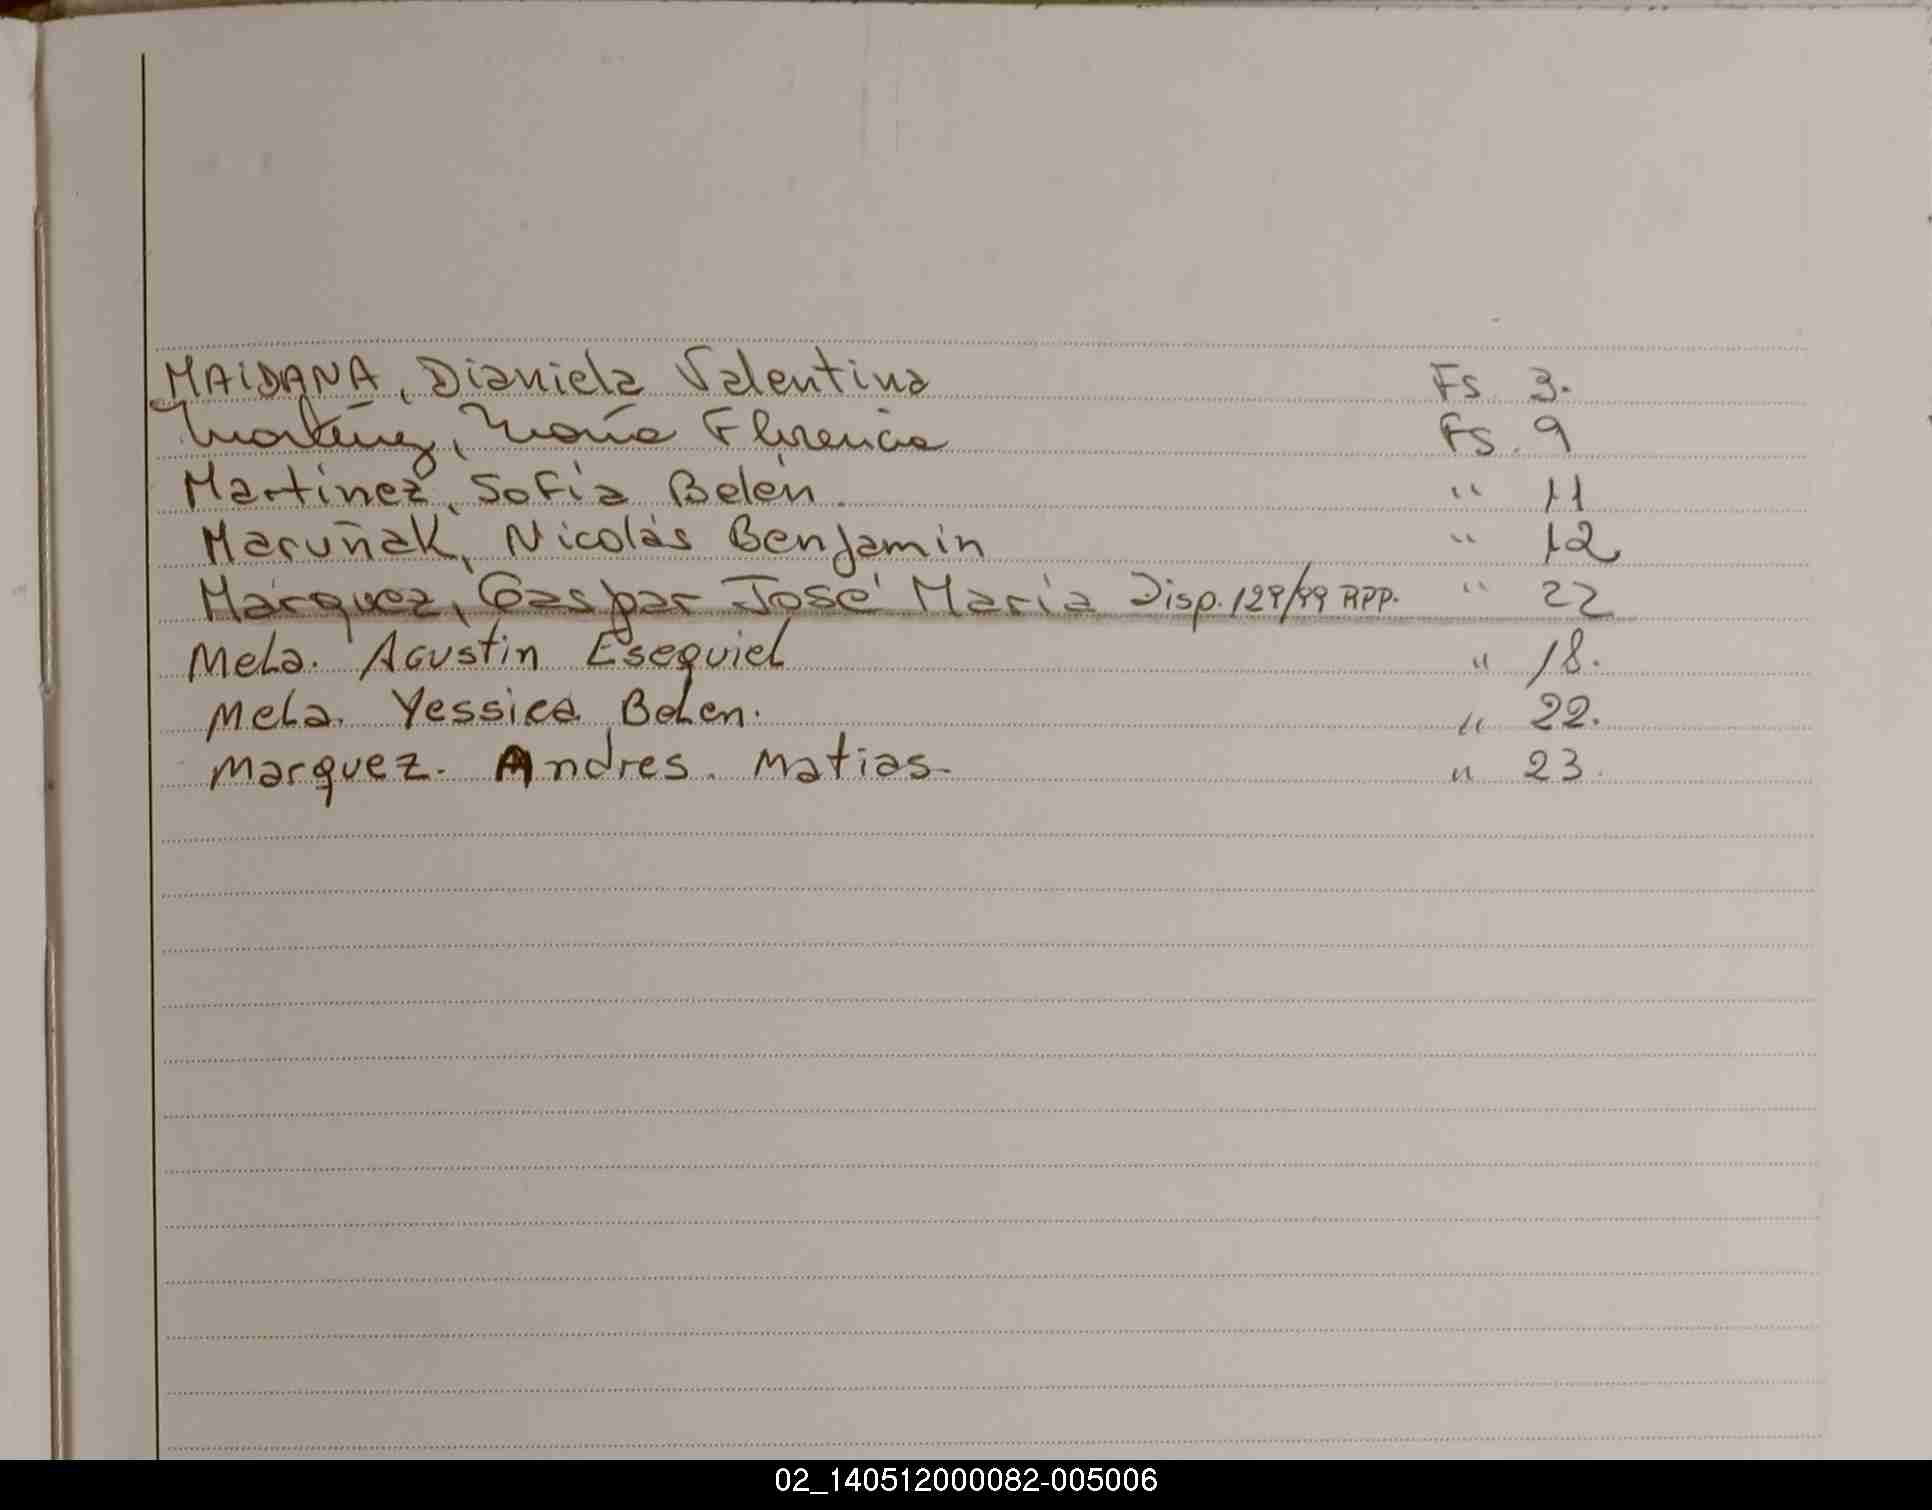 MAIDANA, Dianiela Valentina Fs 3.
Martínez, María Florencia Fs. 9
Martínez, Sofía Belén. " 11
Maruñak, Nicolás Benjamín " 12
Márquez, Gaspar José María Disp. 129/99 RPP. " 22
Mela. Agustin Esequiel " 18.
Mela. Yessica Belen. " 22.
Marquez. Andres. Matias. " 23.
02_140512000082-005006